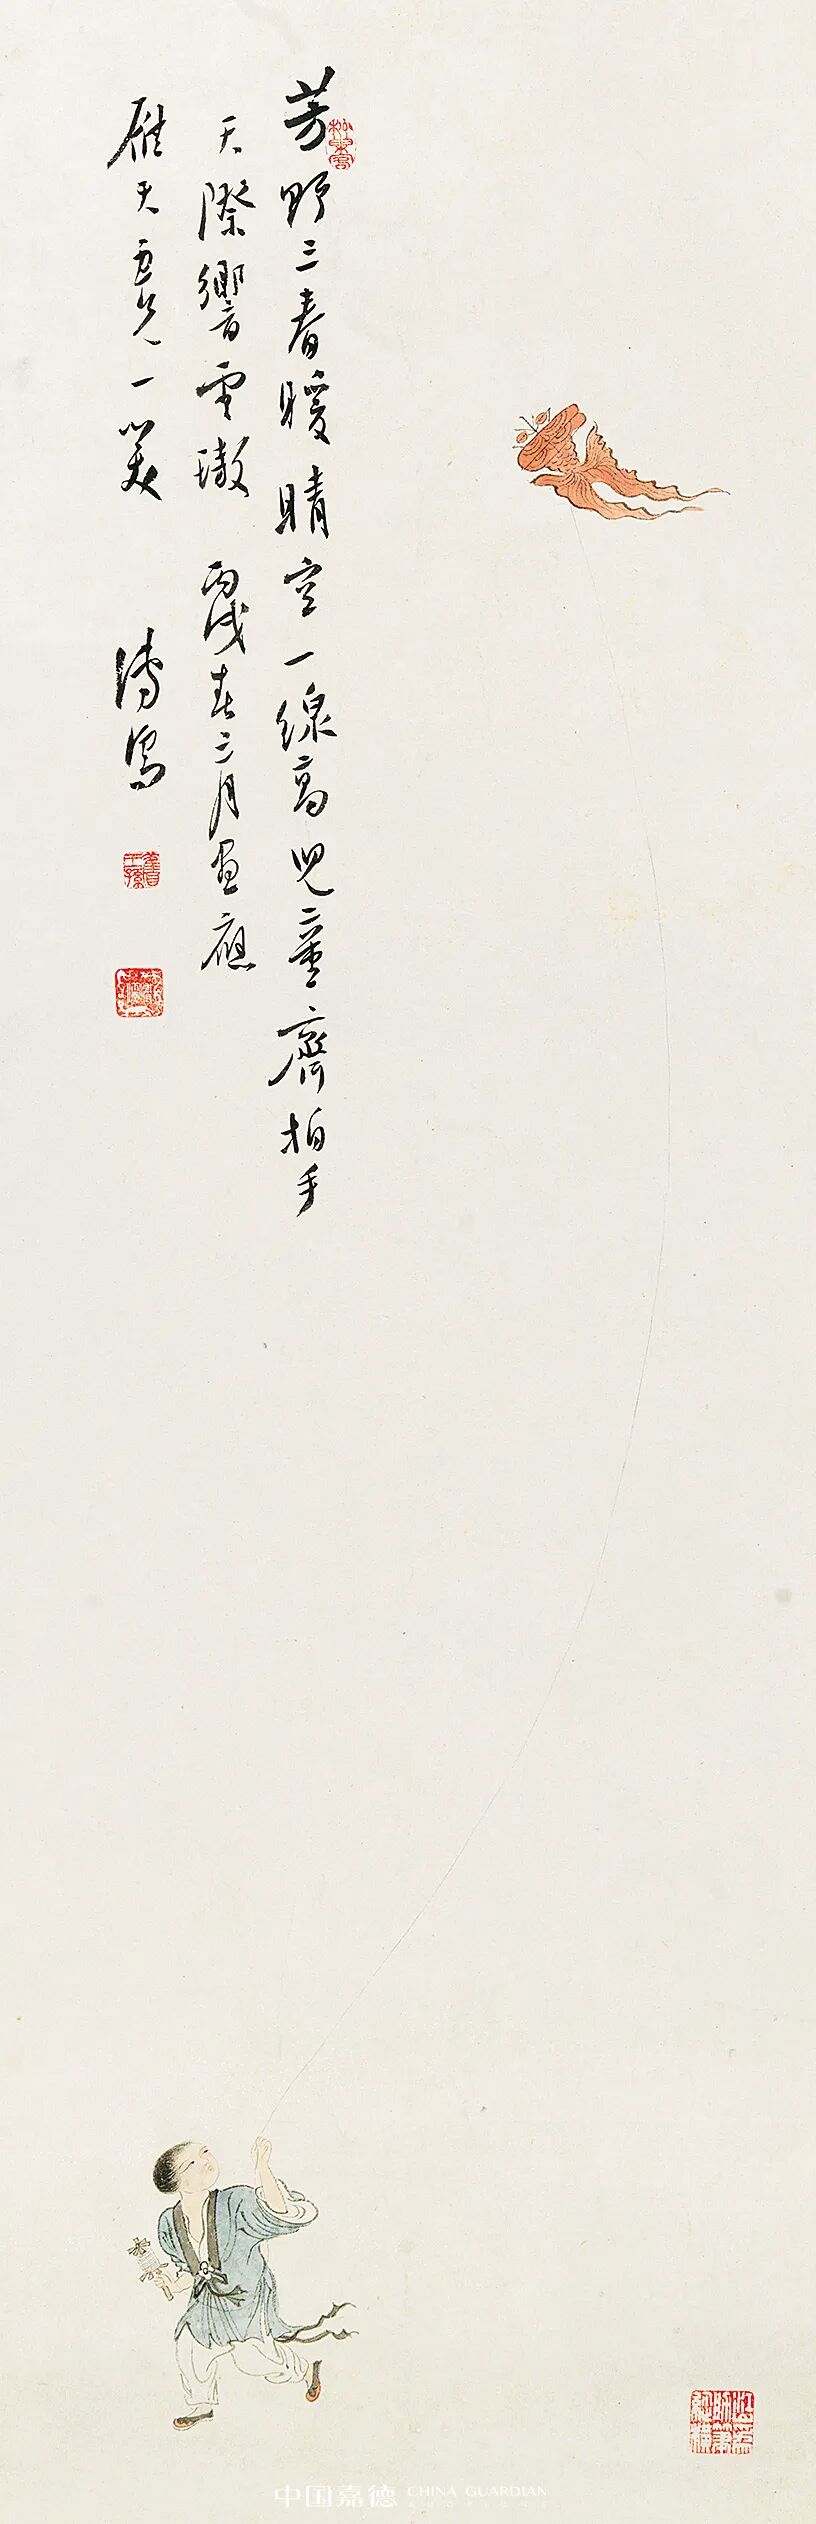 芳野三春暖晴空一線高兒童齊拍手
天際響雲璈 丙戌春三月畫應
雁天五兄一笑 溥儒
中国嘉德 CHINA GUARDIAN